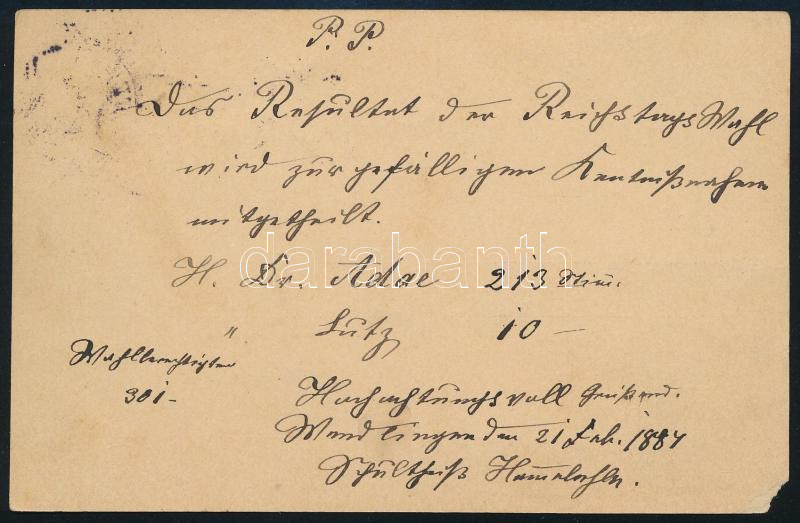 P. P.
Das Resultat der Reichstags Wahl
wird zur gefälligen Kentnißnahme
mitgetheilt.
H. Dr. Adae 213 Stim.
" Lutz 10 —
Wahlberechtigten
301 —
Hochachtungsvoll Grüßend.
Wendlingen den 21 Feb. 1887
Schultheiß
darabanth